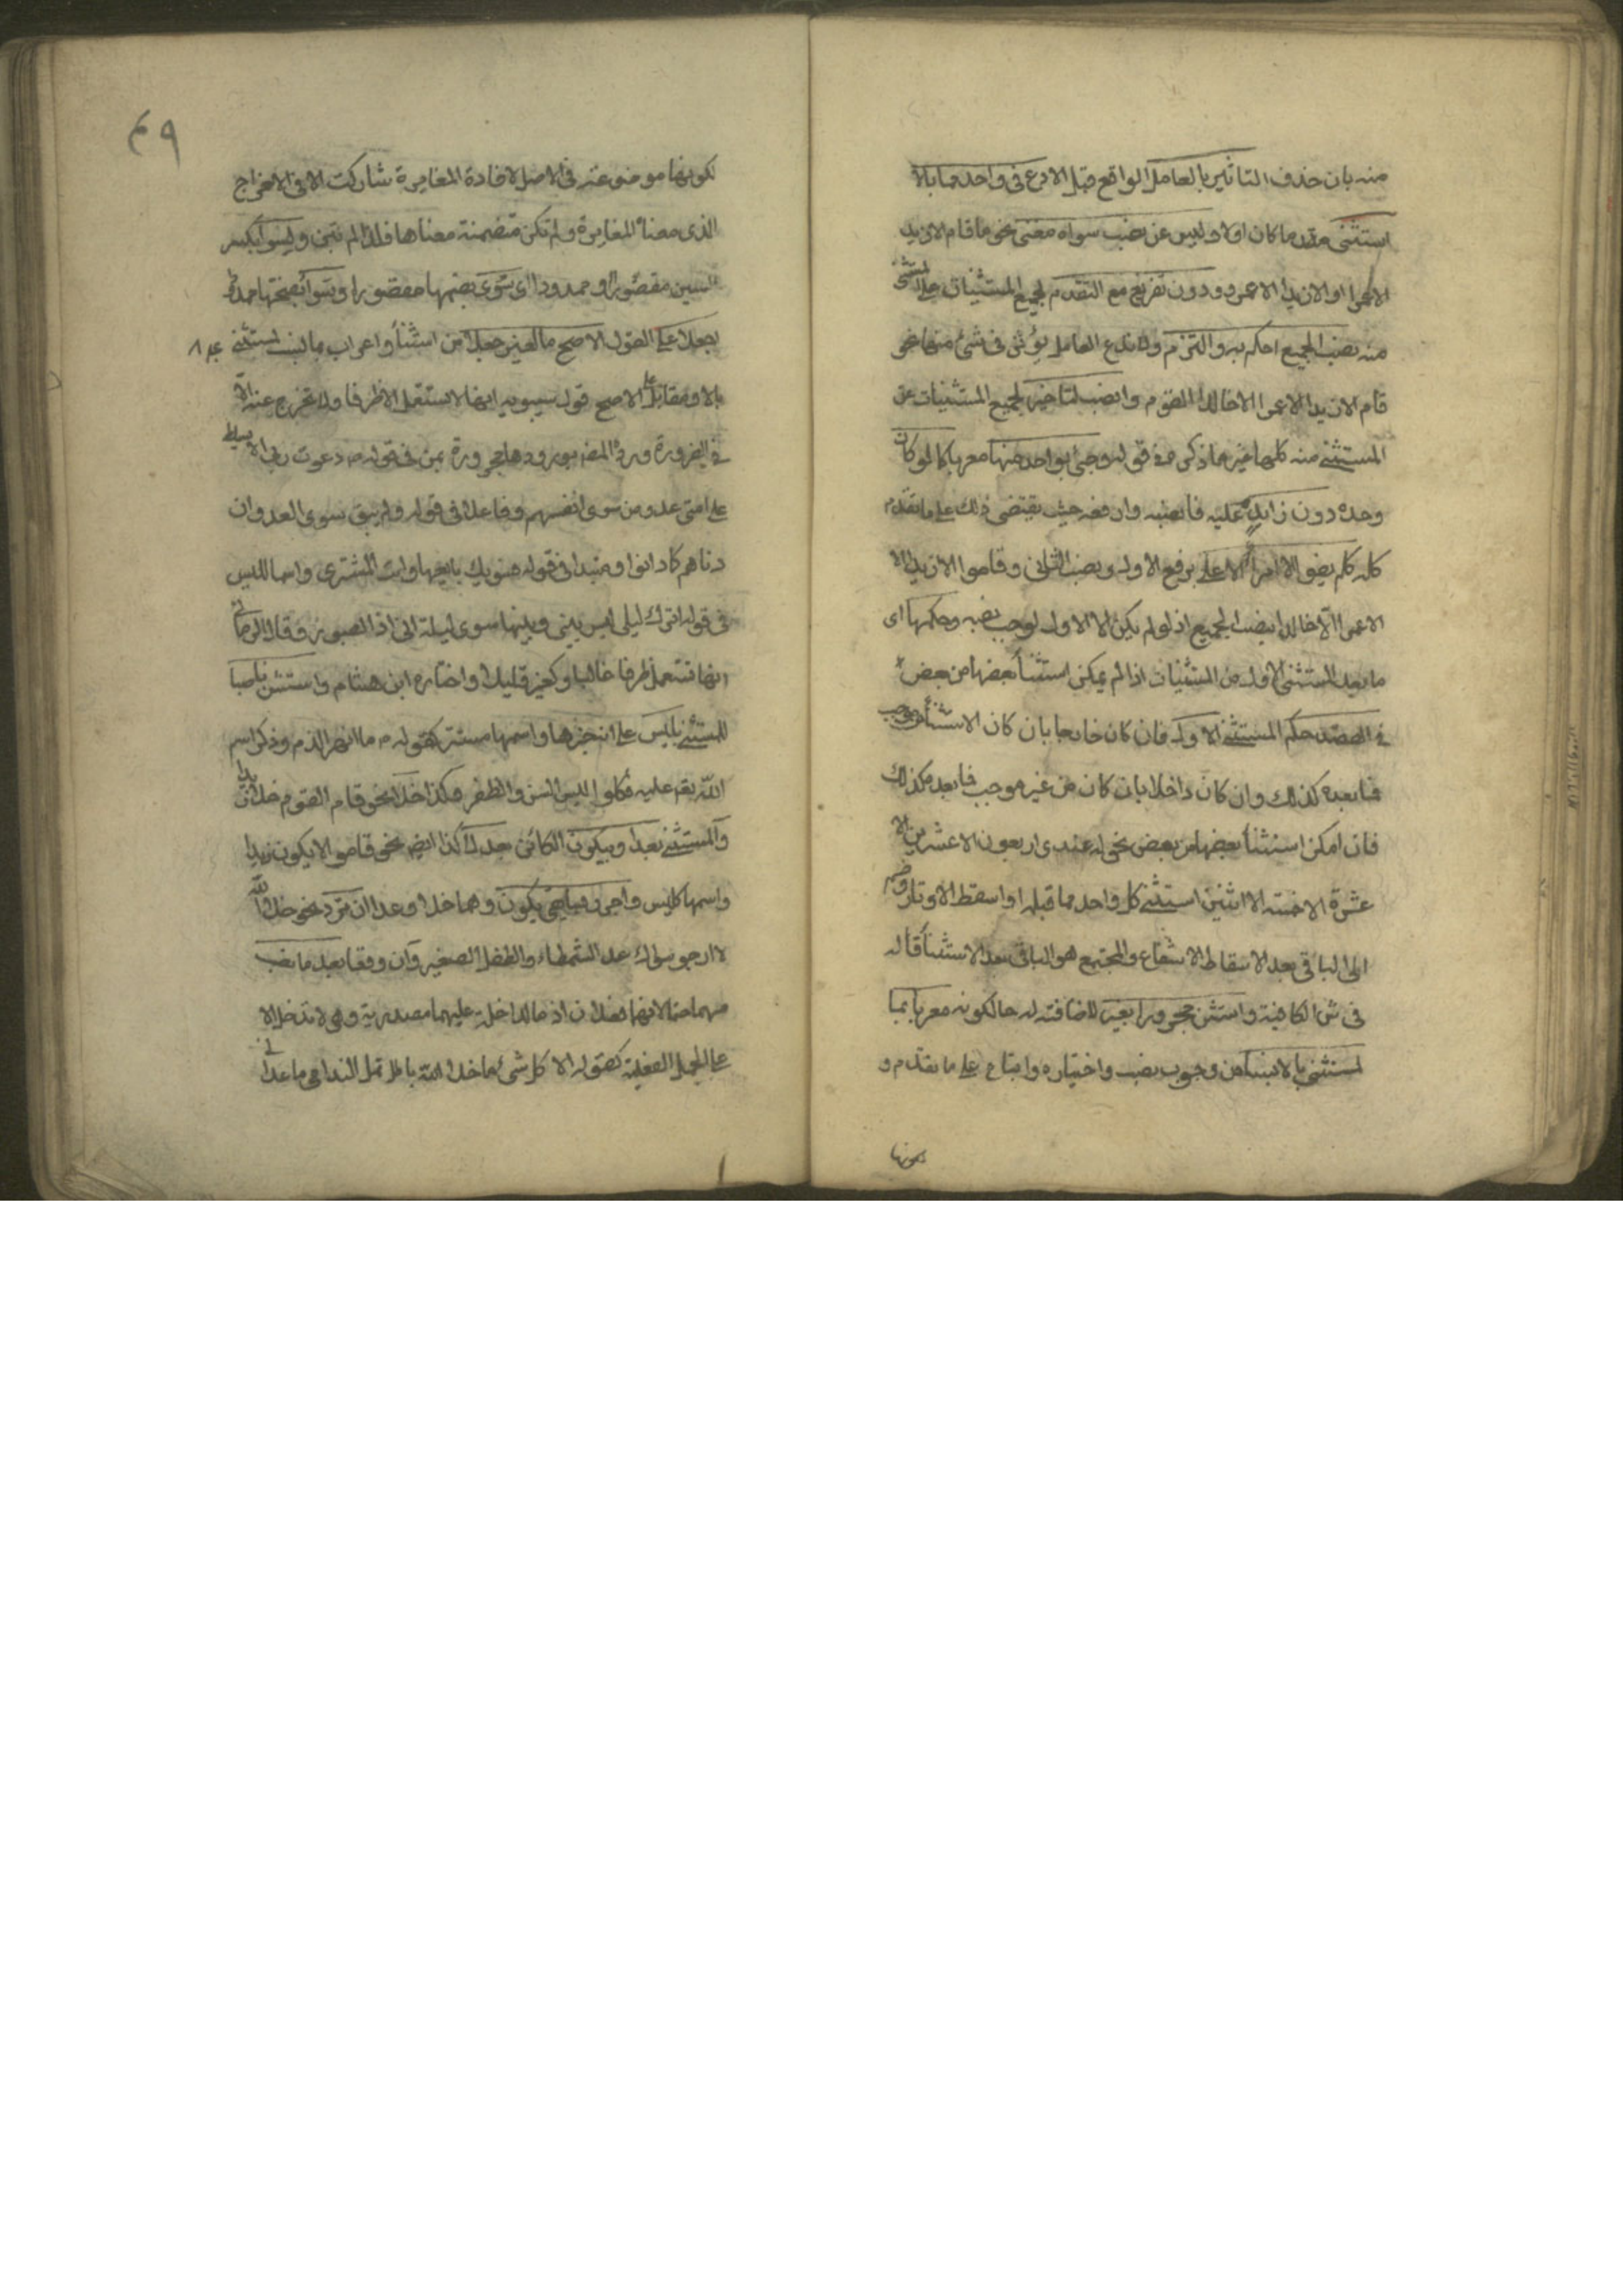 منه بان حذف التاثير بالعامل الواقع قبل الا دع في واحد مما بالا
استثنى مقدما كان اولا وليس عن نصب سواه مغنى نحو ما قام الا زيد
الا عمرا او الا زيدا الا عمرو ودون تفريغ مع التقدم لجميع المستثنيات على المستثنى
منه نصب الجميع احكم به والتزم ولا تدع العامل يؤثر في شئ منها نحو
قام الا زيدا الا عمرا الا خالدا القوم وانصب لتاخير لجميع المستثنيات عن
المستثنى منه كلها غير ما ذكر في قوله وجئ بواحد منها معربا كما لو كان
وحده دون زايد عليه فانصبه وارفعه حيث يقتضى ذلك على ما تقدم
كله كلم يفو الا امرأ الا على برفع الاول ونصب الثانى وقاموا الا زيدا الا
الا عمرا الا خالدا بنصب الجميع اذ لو لم يكن الا الاول لوجب نصبه وحكمها اى
ما بعد المستثنى الاول من المستثنيات اذا لم يمكن استثناء بعضها من بعض
في القصد حكم المستثنى الاول فان كان خارجا بان كان الاستثناء من موجب
فما بعده كذلك وان كان داخلا بان كان من غير موجب فما بعد فكذلك
فان امكن استثناء بعضها من بعض نحو له عندى اربعون الا عشرين الا
عشرة الا خمسة الا اثنين استثنى كل واحد مما قبله او اسقط الاوتار وضم
الى الباقى بعد الاسقاط الاشفاع والمجتمع هو الباقى بعد الاستثناء قاله
في ش الكافية واستثن مجرورا بغير لاضافته له حالكونه معربا بما
لمستثنى بالا نسبا من وجوب نصب واختياره واتباع على ما تقدم و
لكونها موضوعة في الاصل لافادة المغايرة شاركت الا في الاخراج
الذى معناه المغايرة ولم تكن متضمنة معناها فلذا لم تبن ولسوا بكسر
السين مقصورا وممدودا اى سوى بضمها مقصورا وسواء بفتحها ممدودا
اجعلا على القول الاصح ما لغير جعلا من استثناء واعراب بما نسب لمستثنى
بالا ومقابل الاصح قول سيبويه انها لا تستعمل الا ظرفا ولا تخرج عنه الا
في الضرورة ورده المص بورودها مجرورة بمن في قوله دعوت ربى الا يسلط
على امتى عدوا من سوى انفسهم وفاعلا في قوله ولم يبق سوى العدوان
دناهم كما دانوا ومبتدا في قوله فسويك بايعها وانت المشترى واسما لليس
في قوله اترك ليلى ليس بينى وبينها سوى ليلة انى اذا لصبور وقال الرمانى
انها تستعمل ظرفا غالبا وكغير قليلا واختاره ابن هشام واستثن ناصبا
للمستثنى بليس على انه خبرها واسمها مستتر كقوله ما انهر الدم وذكر اسم
الله عليه فكلوا ليس السن والظفر وكذا خلا نحو قام القوم خلا زيدا
والمستثنى بعدا وبيكون الكائن بعد لا كذا ايضا نحو قاموا لا يكون زيدا
واسمها كليس واجرر بسابقى يكون وهما خلا وعدا ان ترد نحو خلا الله
لا ارجو سواك عدا الشمطاء والطفل الصغير وان وقعا بعد ما نصب
بهما حتما لانهما فعلان اذ ما الداخلة عليهما مصدرية وهى لا تدخل الا
على الجمل الفعلية كقوله الا كل شئ ما خلا الله باطل تمل الندامى ما عدانى